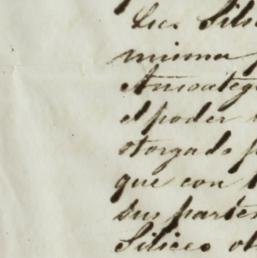 Luz Sili
misma
Amoateg
el poder
otorgado p
que con
sus parten
Siliceo ot